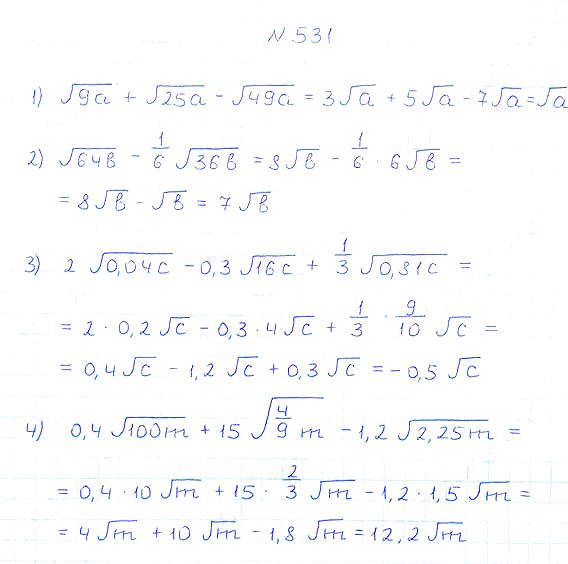 N 531
1) √9a + √25a - √49a = 3√a + 5√a - 7√a = √a
2) √64в - 1/6 √36в = 8√в - 1/6 · 6√в =
= 8√в - √в = 7√в
3) 2 √0,04c - 0,3 √16c + 1/3 √0,81c =
= 2 · 0,2 √c - 0,3 · 4√c + 1/3 · 9/10 √c =
= 0,4√c - 1,2 √c + 0,3 √c = -0,5 √c
4) 0,4 √100m + 15 √4/9 m - 1,2 √2,25m =
= 0,4 · 10 √m + 15 · 2/3 √m - 1,2 · 1,5 √m =
= 4√m + 10 √m - 1,8 √m = 12,2 √m